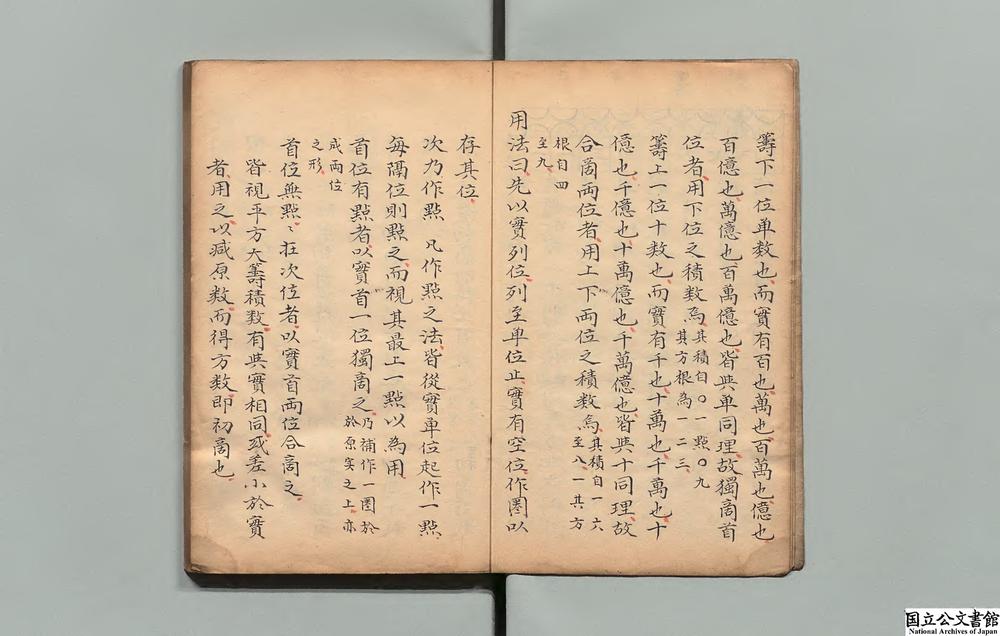 籌下一位单数也而實有百也萬也百萬也億也
百億也萬億也百萬億也皆與单同理故獨商首
位者用下位之積數焉其積自〇一點〇九
其方根為一二三
籌上一位十数也而實有千也十萬也千萬也十
億也千億也十萬億也千萬億也皆與十同理故
合商兩位者用上下兩位之積数焉其積自一六
至八一其方
根自四
至九
用法曰先以實列位列至单位止實有空位作圏以
存其位
次乃作點 凡作點之法皆從實单位起作一點
每隔位則點之而視其最上一點以為用
首位有點者以實首一位獨商之乃補作一圏於
於原实之上亦
成兩位
之形
首位無點點在次位者以實首兩位合商之
皆視平方大籌積数有與實相同或差小於實
者用之以减原数而得方数即初商也
国立公文書館
National Archives of Japan